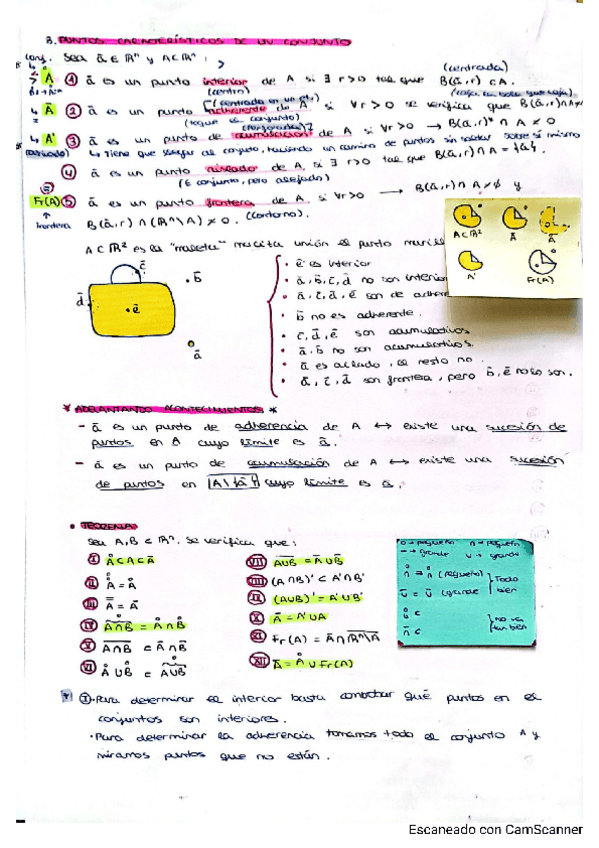 3. PUNTOS CARACTERÍSTICOS DE UN CONJUNTO
Sea ā ∈ ℝⁿ y A⊂ℝⁿ:
(centrada)
Å ① ā es un punto interior de A si ∃ r>0 tal que B(ā,r) ⊂ A.
(centro)
Ā ② ā es un punto adherente de A si ∀r>0 se verifica que B(ā,r)∩A≠
(toque el conjunto)
A' ③ ā es un punto de acumulación de A si ∀r>0 → B(ā,r)* ∩ A ≠ ∅
↳ Tiene que llegar al conjunto, haciendo un camino de puntos sin saltar sobre sí mismo
④ ā es un punto aislado de A, si ∃ r>0 tal que B(ā,r)∩A = {ā}.
(∈ conjunto, pero alejado)
Fr(A) ⑤ ā es un punto frontera de A, si ∀r>0 → B(ā,r) ∩ A ≠ ∅ y
frontera B(ā,r) ∩ (ℝⁿ\A) ≠ ∅. (Contorno).
A⊂ℝ²
Å
Ā
A'
Fr(A)
A⊂ℝ² es la "maleta" unión el punto
c̄
b̄
d̄
ē
ā
• ē es interior
• ā, b̄, c̄, d̄ no son interior
• ā, c̄, d̄, ē son de adhere
• b̄ no es adherente.
• c̄, d̄, ē son acumulativos
• ā, b̄ no son acumulativos.
• ā es aislado, el resto no.
• ā, c̄, d̄ son frontera, pero b̄, ē no lo son.
* ADELANTANDO ACONTECIMIENTOS *
- ā es un punto de adherencia de A ↔ existe una sucesión de
puntos en A cuyo límite es ā.
- ā es un punto de acumulación de A ↔ existe una sucesión
de puntos en A\{ā} cuyo límite es ā.
• TEOREMA
Sea A,B ⊂ ℝⁿ. Se verifica que:
I Å⊂A⊂Ā
II
III
IV
V
VI
VII A∪B = Ā∪B̄
VIII (A∩B)' ⊂ A'∩B'
IX (A∪B)' = A'∪B'
X Ā = A'∪A
XI Fr(A) = Ā∩ℝⁿ\A
XII Ā = Å ∪ Fr(A)
o → pequeño ∩ → pequeño
— → grande ∪ → grande
(pequeño) } Todo
(grande) bien
no va
tan bien
① • Para determinar el interior basta qué puntos en el
conjuntos son interiores.
• Para determinar la adherencia tomamos todo el conjunto A y
miramos puntos que no están.
Escaneado con CamScanner